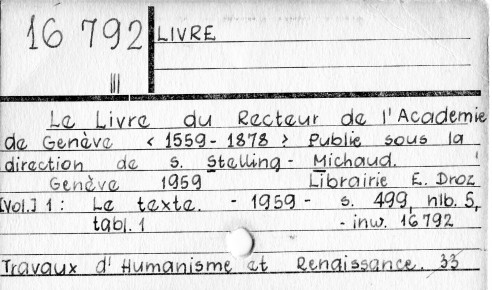 16 792 LIVRE
III
Le Livre du Recteur de l'Academie
de Genève < 1559-1878 > Publie sous la
direction de S. Stelling - Michaud.
Genève 1959 Librairie E. Droz
[Vol.] 1: Le texte. - 1959 - s. 499, nlb. 5,
tabl. 1 - inw. 16792
Travaux d'Humanisme et Renaissance. 33